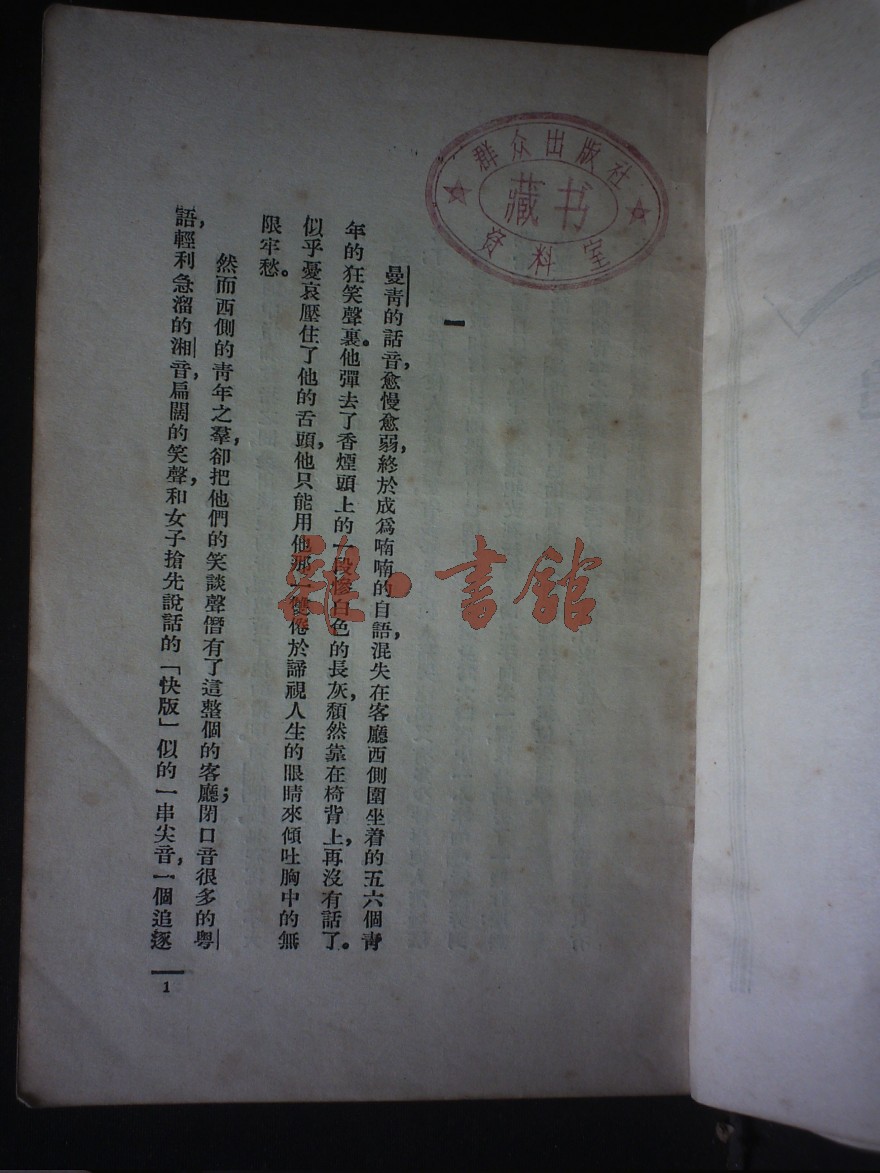 群众出版社
藏书
资料室
一
曼靑的話音,愈慢愈弱,終於成爲喃喃的自語,混失在客廳西側圍坐着的五六個靑
年的狂笑聲裏。他彈去了香煙頭上的一段慘白色的長灰,頹然靠在椅背上,再沒有話了。
似乎憂哀壓住了他的舌頭,他只能用他那一雙倦於諦視人生的眼睛來傾吐胸中的無
限牢愁。
然而西側的靑年之羣,卻把他們的笑談聲僭有了這整個的客廳;閉口音很多的粵
語,輕利急溜的湘音,扁闊的笑聲,和女子搶先說話的「快版」似的一串尖音,一個追逐
1
雜·書館